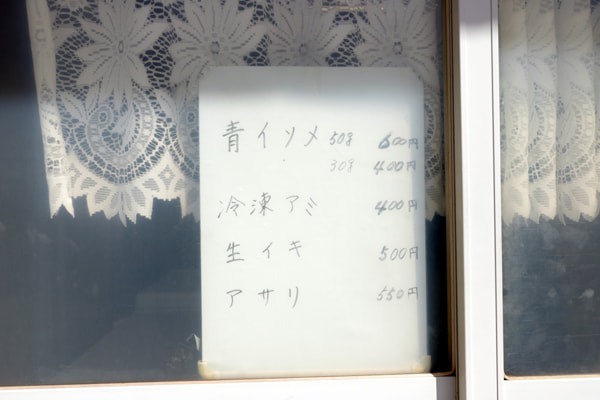 青イソメ 50g 600円
30g 400円
冷凍アミ 400円
生イキ 500円
アサリ 550円